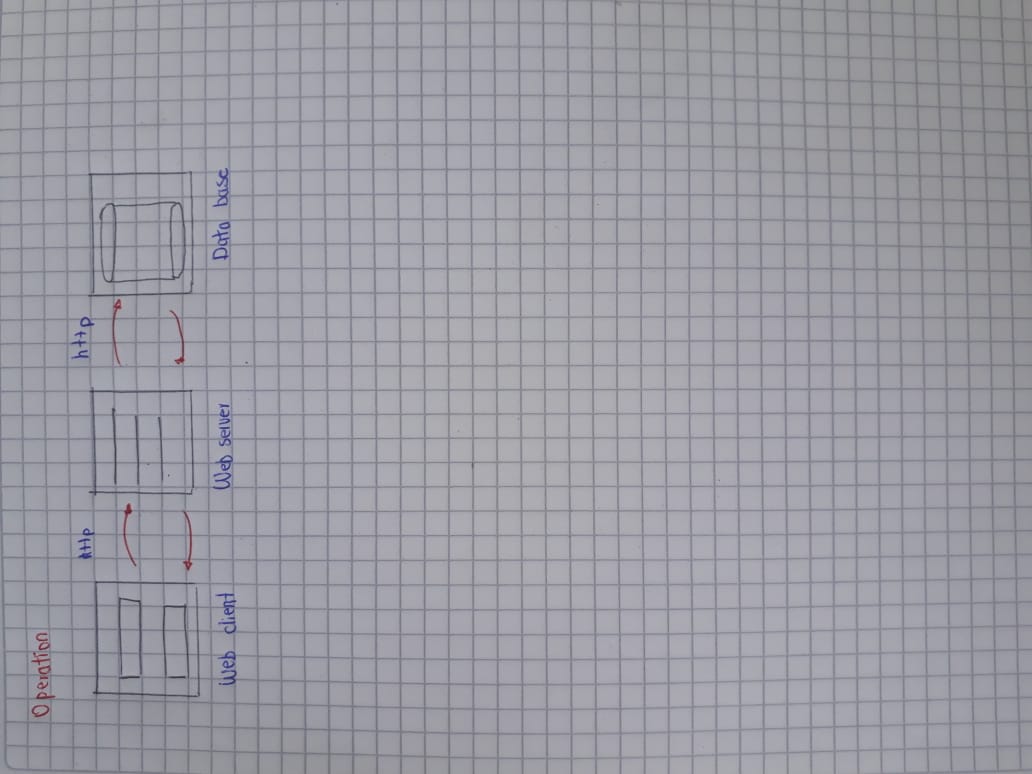 Operation
http
http
Web client
Web server
Data base